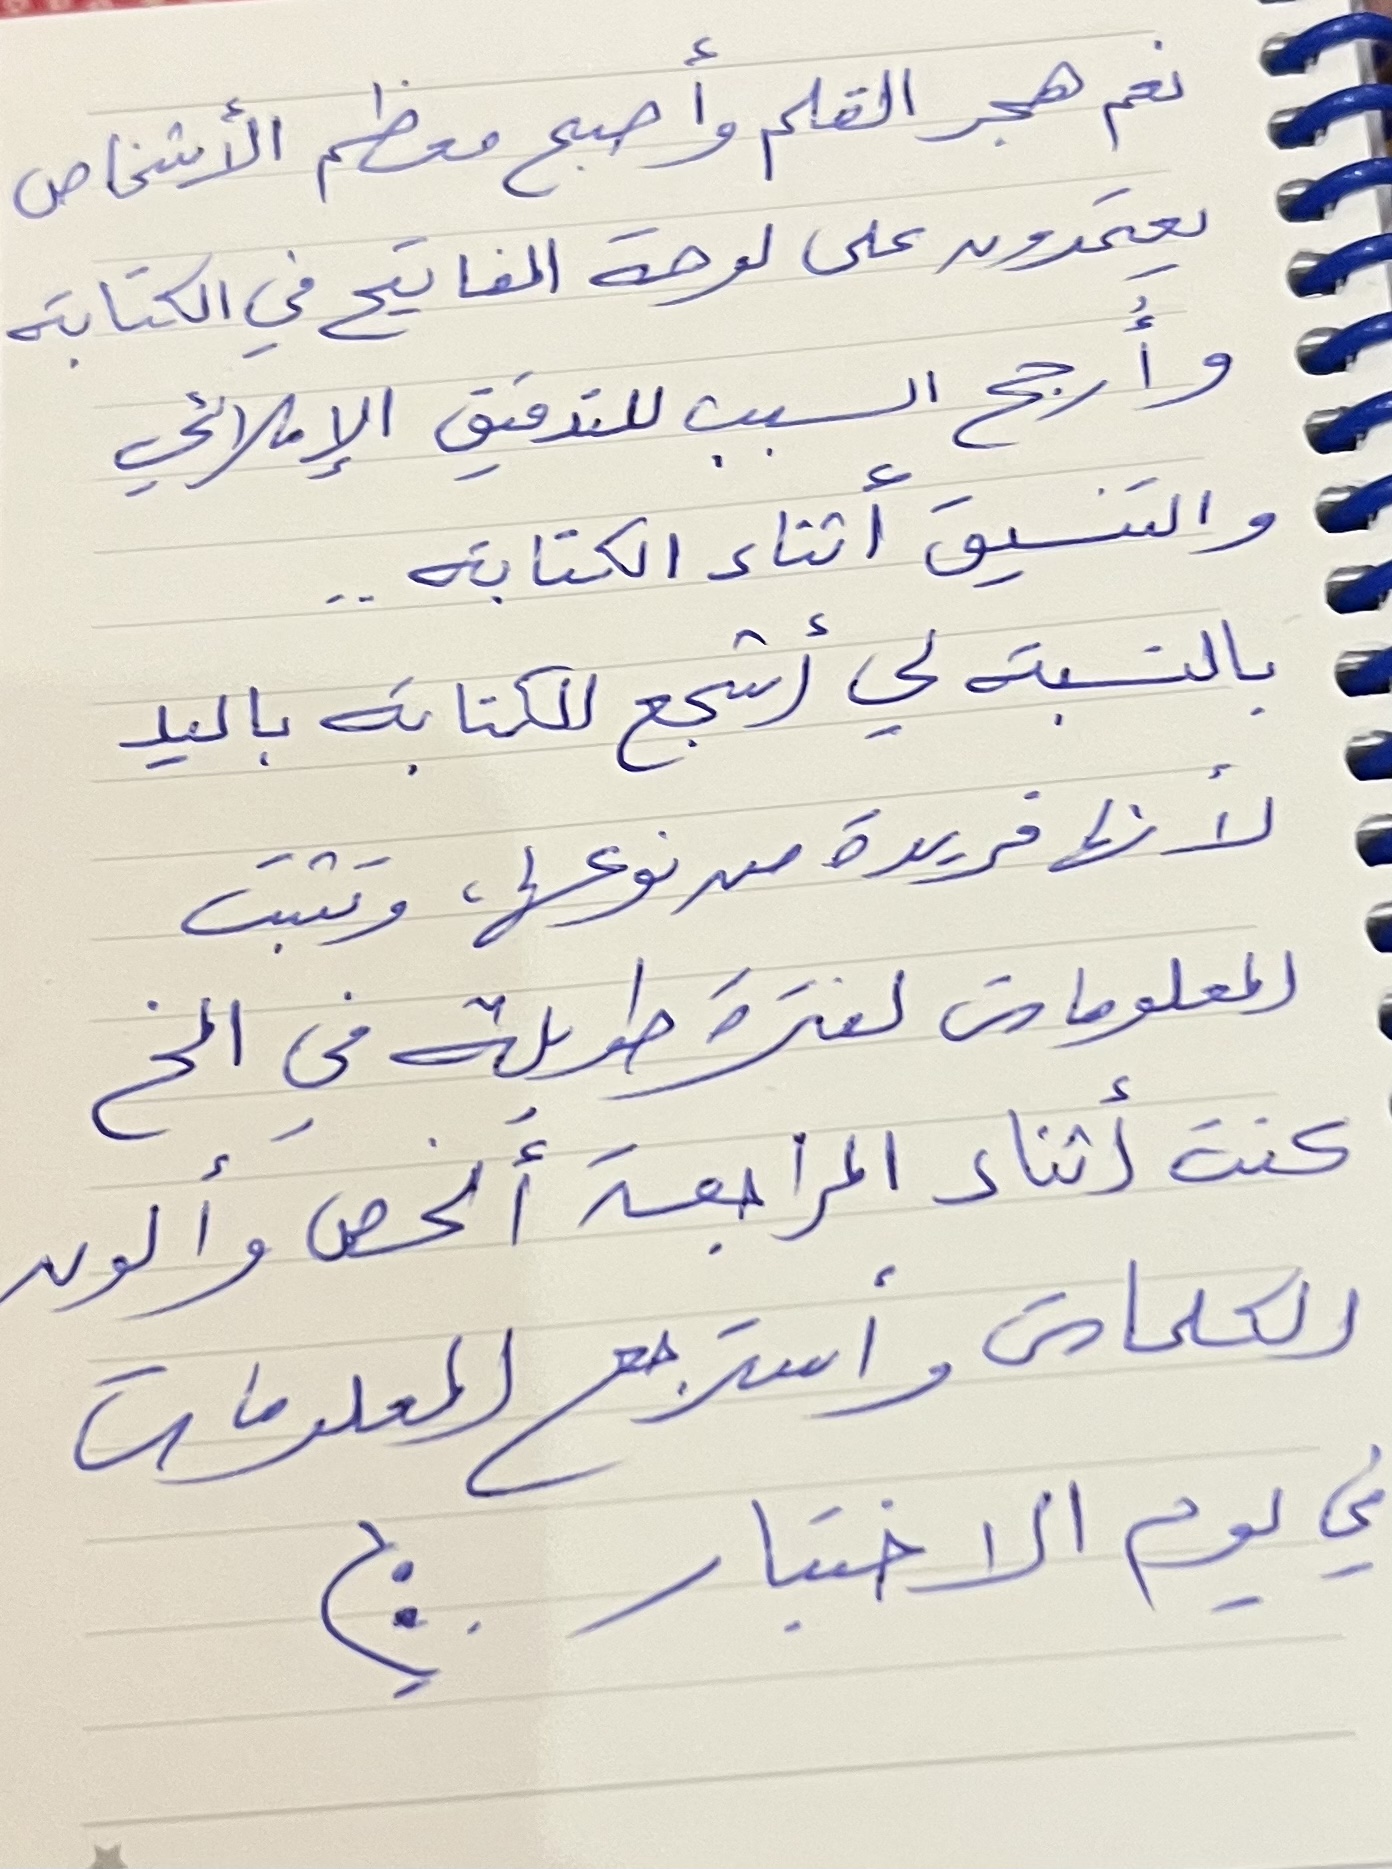 نعم هجر القلم وأصبح معظم الأشخاص
يعتمدون على لوحة المفاتيح في الكتابة
وأُرجح السبب للتدقيق الإملائي
والتنسيق أثناء الكتابة ..
بالنسبة لي أشجع للكتابة باليد
لأنها فريدة من نوعها، وتثبت
المعلومات لفترة طويلة في المخ
كنت أثناء المراجعة ألخص وألون
الكلمات وأسترجع المعلومات
في يوم الاختبار .